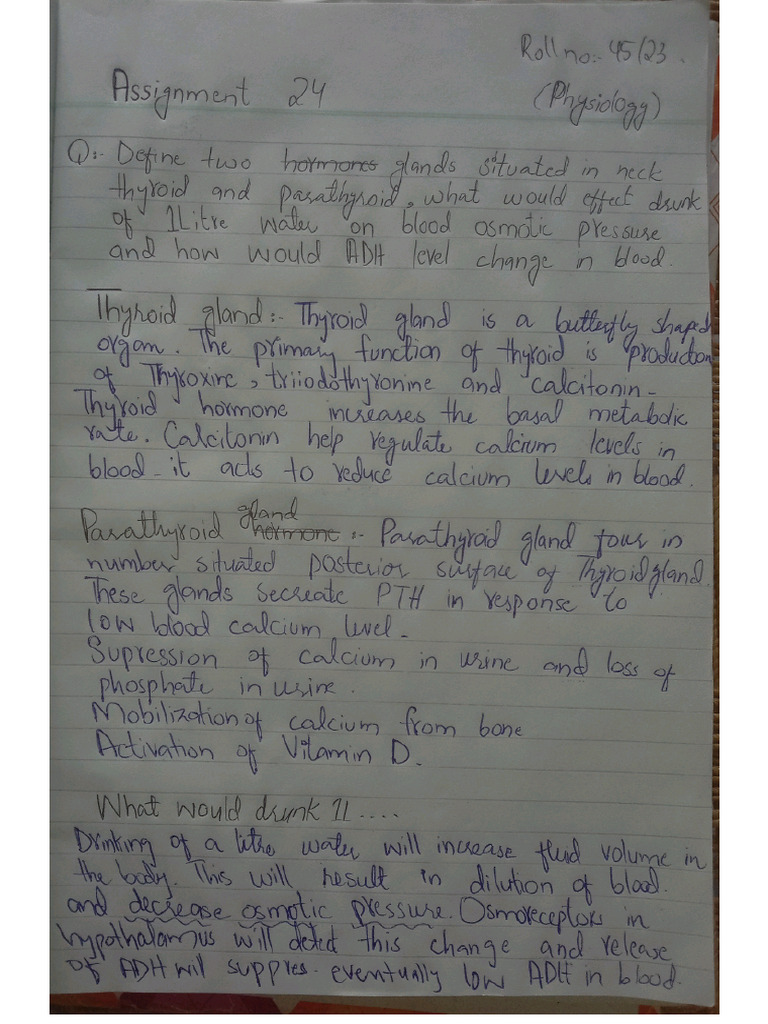 Roll no:- 45/23.
Assignment 24 (Physiology)
Q:- Define two hormones glands situated in neck
thyroid and parathyroid, what would effect drunk
of 1Litre water on blood osmotic pressure
and how would ADH level change in blood.
Thyroid gland:- Thyroid gland is a butterfly shaped
organ. The primary function of thyroid is production
of Thyroxine, triiodothyronine and calcitonin-
Thyroid hormone increases the basal metabolic
rate. Calcitonin help regulate calcium levels in
blood- it acts to reduce calcium levels in blood.
gland
Parathyroid hormone:- Parathyroid gland four in
number situated posterior surface of Thyroid gland.
These glands secreate PTH in response to
low blood calcium level-
Supression of calcium in urine and loss of
phosphate in urine.
Mobilization of calcium from bone
Activation of Vitamin D.
What would drunk 1l....
Drinking of a litre water will increase fluid volume in
the body. This will result in dilution of blood.
and decrease osmotic pressure. Osmoreceptors in
hypothalamus will detect this change and release
of ADH will suppres. eventually low ADH in blood.